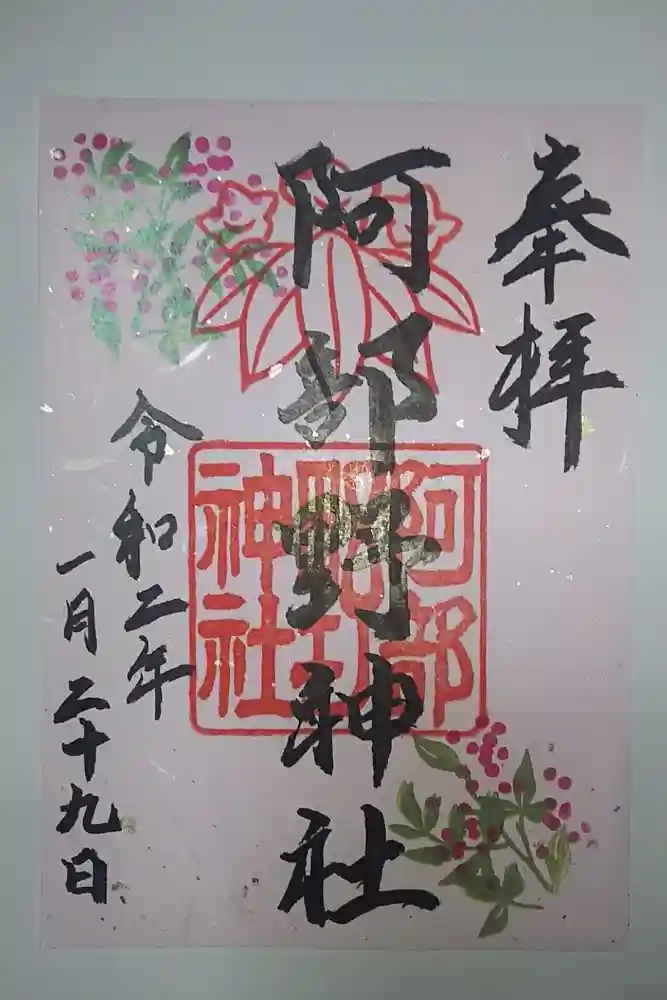 奉拝
阿部野神社
阿部
野印
神社
令和二年
一月二十九日